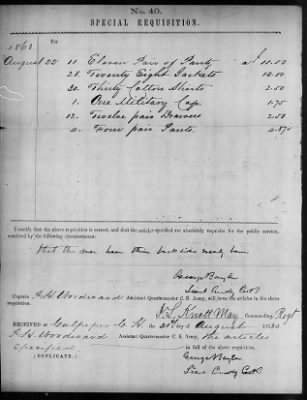 No. 40.
SPECIAL REQUISITION.
For
1863
August 22 11 Eleven Pair of Pants at 11.00
28. Twenty Eight Jackets 12.00
30. Thirty Cotton Shirts 2.50
1. One Military Cap. 1.75
12. Twelve pair Drawers 2.50
4. Four pair Pants.
I certify that the above requisition is correct, and that the articles specified are absolutely requisite for the public service,
rendered so by the following circumstances:
that the men have their
George Baylor
Captain Woodward Assistant Quartermaster C. S. Army, will issue the articles in the above
requisition.
Knott May Commanding Regt
RECEIVED at Culpeper C. H. the of August 186
Woodward Assistant Quartermaster C. S. Army, the articles
Specified in full of the above requisition.
George Baylor
(DUPLICATE.)